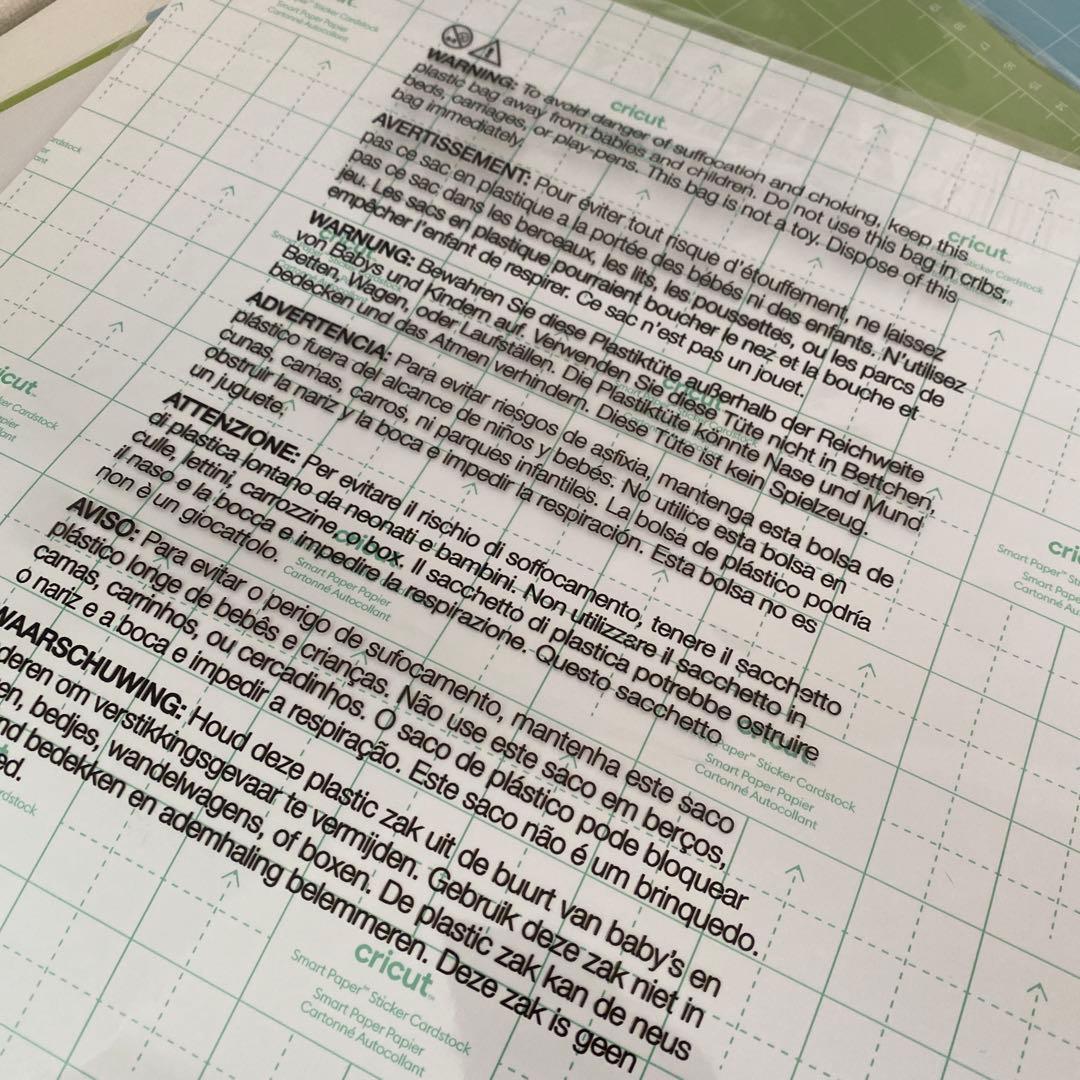 cricut
Paper™ Sticker Cardstock
Smart Paper Papier
Cartonné Autocollant
WARNING: To avoid danger of suffocation and choking, keep this
plastic bag away from babies and children. Do not use this bag in cribs,
beds, carriages, or play-pens. This bag is not a toy. Dispose of this
bag immediately.
cricut
cricut
Sticker Cardstock
AVERTISSEMENT: Pour éviter tout risque d'étouffement, ne laissez
pas ce sac en plastique a la portée des bébés ni des enfants. N'utilisez
pas ce sac dans les berceaux, les lits, les poussettes, ou les parcs de
jeu. Les sacs en plastique pourraient boucher le nez et la bouche et
empêcher l'enfant de respirer. Ce sac n'est pas un jouet.
WARNUNG: Bewahren Sie diese Plastiktüte außerhalb der Reichweite
von Babys und Kindern auf. Verwenden Sie diese Tüte nicht in Bettchen,
Betten, Wagen, oder Laufställen. Die Plastiktüte könnte Nase und Mund
bedecken und das Atmen verhindern. Diese Tüte ist kein Spielzeug.
ADVERTENCIA: Para evitar riesgos de asfixia, mantenga esta bolsa de
plástico fuera del alcance de niños y bebés. No utilice esta bolsa en
cunas, camas, carros, ni parques infantiles. La bolsa de plástico podría
obstruir la nariz y la boca e impedir la respiración. Esta bolsa no es
un juguete.
ATTENZIONE: Per evitare il rischio di soffocamento, tenere il sacchetto
di plastica lontano da neonati e bambini. Non utilizzare il sacchetto in
culle, lettini, carrozzine o box. Il sacchetto di plastica potrebbe ostruire
il naso e la bocca e impedire la respirazione. Questo sacchetto
non è un giocattolo.
Smart Paper Papier
Cartonné Autocollant
icut
Sticker Cardstock
cri
Smart Paper™ Stick
Smart Pape
Cartonné Au
AVISO: Para evitar o perigo de sufocamento, mantenha este saco
plástico longe de bebês e crianças. Não use este saco em berços,
camas, carrinhos, ou cercadinhos. O saco de plástico pode bloquear
o nariz e a boca e impedir a respiração. Este saco não é um brinquedo.
Paper™ Sticker Cardstock
Smart Paper Papier
Cartonné Autocollant
WAARSCHUWING: Houd deze plastic zak uit de buurt van baby's en
deren om verstikkingsgevaar te vermijden. Gebruik deze zak niet in
en, bedjes, wandelwagens, of boxen. De plastic zak kan de neus
nd bedekken en ademhaling belemmeren. Deze zak is geen
ed.
cricut
Smart Paper™ Sticker Cardstock
Smart Paper Papier
Cartonné Autocollant